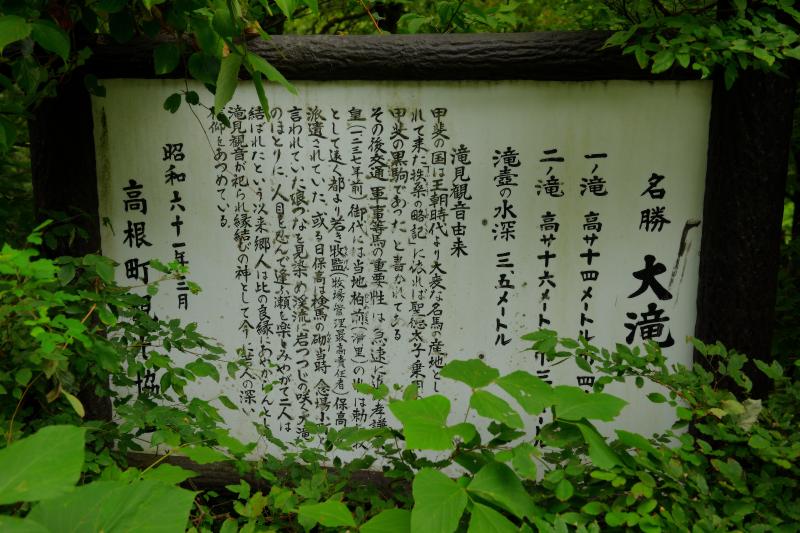 名勝 大滝
一ノ滝 高サ十四メートル 四
二ノ滝 高サ十六メートル 十三 ール
滝壺の水深 三.五メートル
滝見観音由来
甲斐の国は王朝時代より大変な名馬の産地とし
れて来た「扶桑の略記」に依れば聖徳太子乗用
甲斐の黒駒であった」と書かれてある
その後交通 軍事等馬の重要性は急速に 孝謙
皇(一二三七年前)御代には当地柏前(清里)の は勅
として遠く都より若き牧監(牧場管理最高責任者)保高
派遣されていた、或る日保高は検馬の砌当時、念場
言われていた娘つなを見染め渓流に岩つつじの咲く大滝
のほとりに、人目を忍んで逢ふ瀬を楽しみやがて二人は
結ばれたという次来郷人は此の良縁にあやからんと
滝見観音が祀られ縁結びの神として今に 人の深い
信仰をあつめている。
昭和六十一年三月
高根町観 協